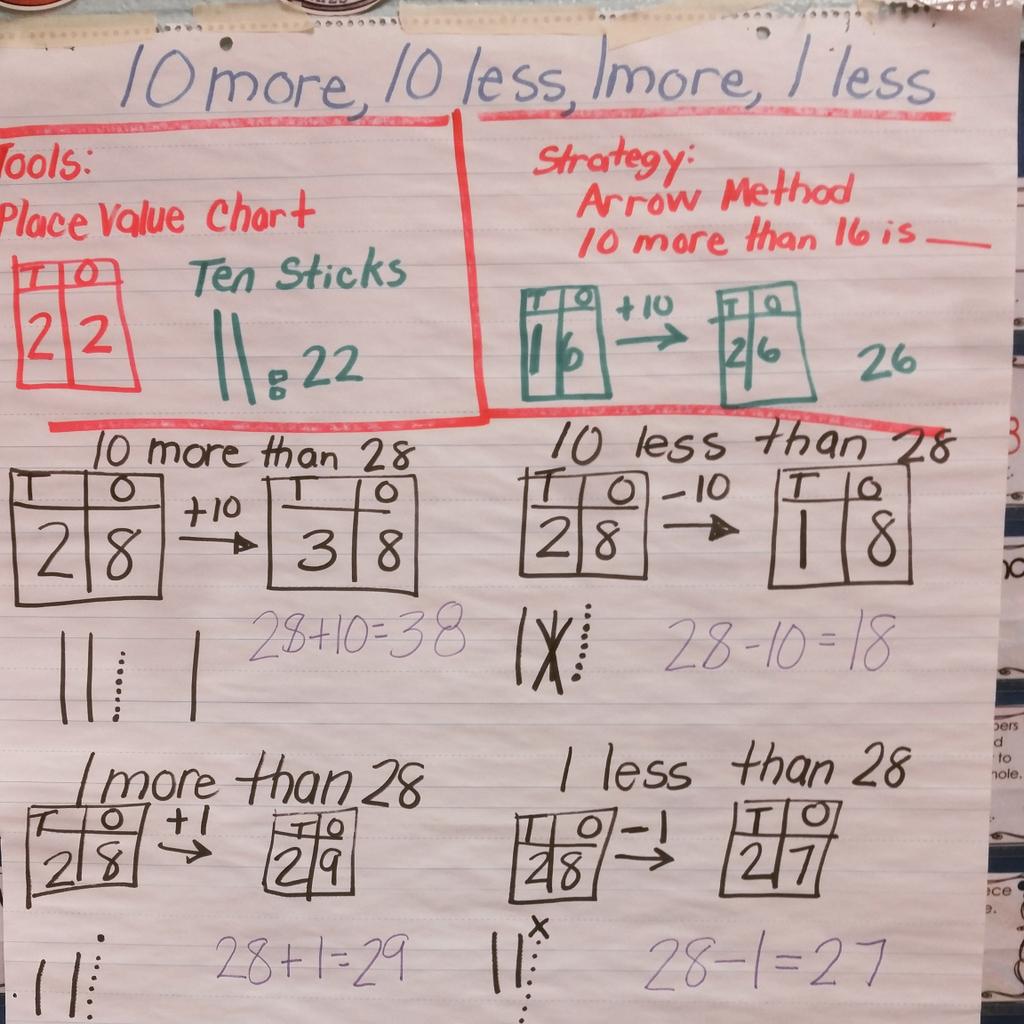 10 more, 10 less, 1more, 1 less
Tools:
Place Value Chart
T O
2 2
Ten Sticks
22
Strategy:
Arrow Method
10 more than 16 is ___
T O
1 6
+10
T O
2 6
26
10 more than 28
T O
2 8
+10
T O
3 8
28+10=38
10 less than 28
T O
2 8
-10
T O
1 8
28-10=18
1 more than 28
T O
2 8
+1
T O
2 9
28+1=29
1 less than 28
T O
2 8
-1
T O
2 7
28-1=27